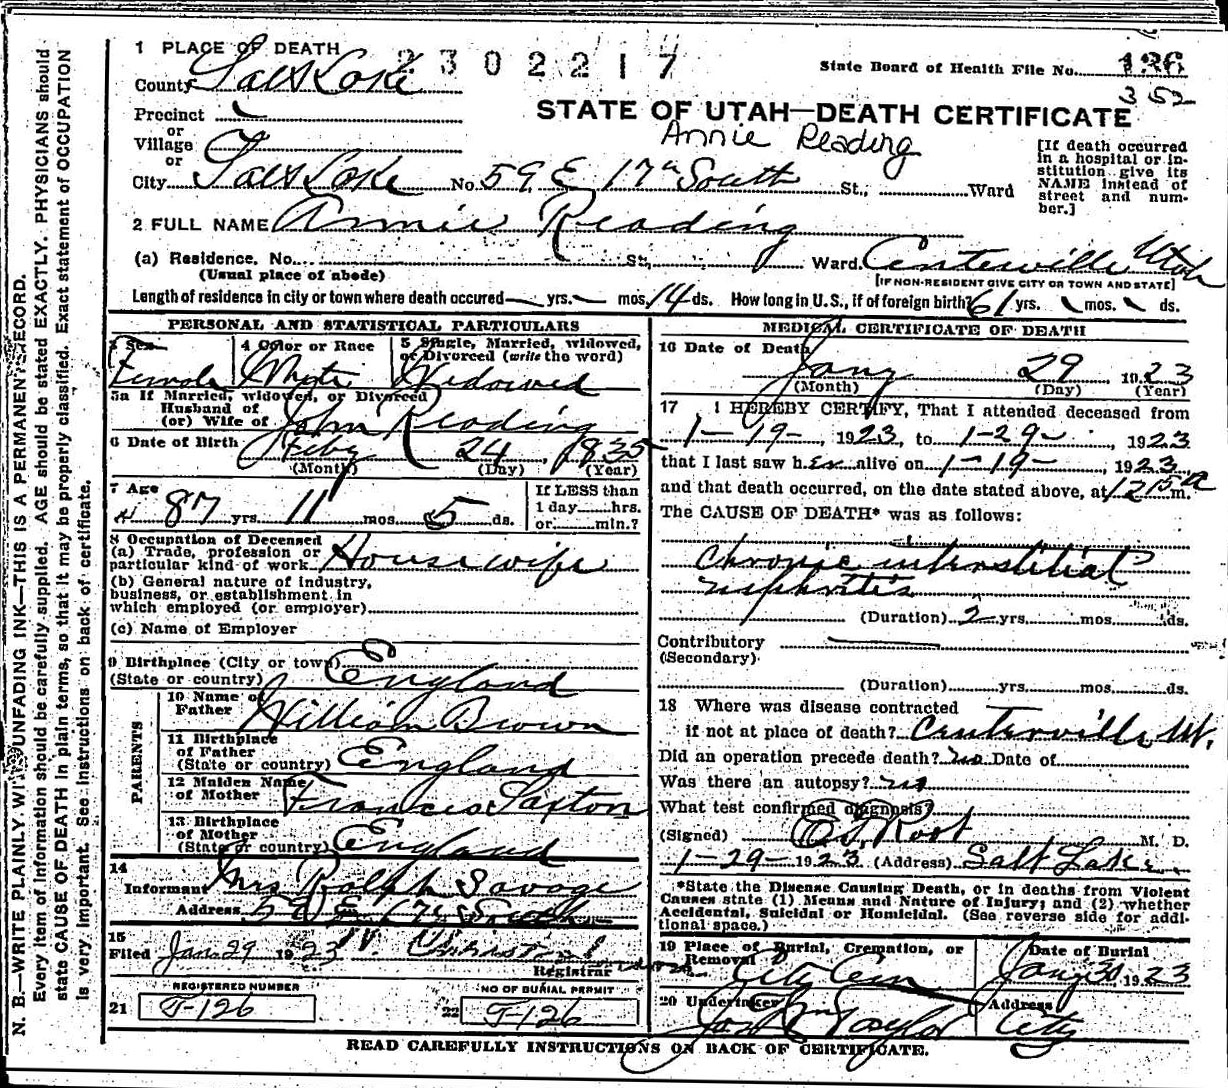 1 PLACE OF DEATH
2302217
State Board of Health File No. 126
352
County Salt Lake
STATE OF UTAH—DEATH CERTIFICATE
Precinct
or
Village
or
Annie Reading
[If death occurred in a hospital or in-stitution give its NAME instead of street and num-ber.]
City Salt Lake No. 59 E 17th South St., Ward
2 FULL NAME Annie Reading
(a) Residence. No. St., Ward. Centerville Utah
(Usual place of abode) [IF NON-RESIDENT GIVE CITY OR TOWN AND STATE]
Length of residence in city or town where death occured yrs. mos. 14 ds. How long in U.S., if of foreign birth? 61 yrs. mos. ds.
PERSONAL AND STATISTICAL PARTICULARS
3 Sex Female
4 Color or Race White
5 Single, Married, widowed, or Divorced (write the word) Widowed
5a If Married, widowed, or Divorced
Husband of
(or) Wife of John Reading
6 Date of Birth Feby 24, 1835
(Month) (Day) (Year)
7 Age 87 yrs. 11 mos. 5 ds.
If LESS than
1 day hrs.
or min.?
8 Occupation of Deceased
(a) Trade, profession or
particular kind of work Housewife
(b) General nature of industry,
business, or establishment in
which employed (or employer)
(c) Name of Employer
9 Birthplace (City or town)
(State or country) England
PARENTS
10 Name of
Father William Brown
11 Birthplace
of Father
(State or country) England
12 Maiden Name
of Mother Francis Saxton
13 Birthplace
of Mother
(State or country) England
14
Informant Mrs Ralph Savage
Address 59 E 17th South
15
Filed Jan. 29 1923
Registrar
REGISTERED NUMBER
21 J-126
NO OF BURIAL PERMIT
22 J-126
MEDICAL CERTIFICATE OF DEATH
16 Date of Death
Jany 29 1923
(Month) (Day) (Year)
17 I HEREBY CERTIFY, That I attended deceased from
1-19-, 1923, to 1-29-, 1923
that I last saw her alive on 1-19-, 1923
and that death occurred, on the date stated above, at 1215 a m.
The CAUSE OF DEATH* was as follows:
Chronic interstitial
nephritis
(Duration) 2 yrs. mos. ds.
Contributory
(Secondary)
(Duration) yrs. mos. ds.
18 Where was disease contracted
if not at place of death? Centerville Ut.
Did an operation precede death? no Date of
Was there an autopsy? no
What test confirmed diagnosis?
(Signed) Root M. D.
1-29- 1923 (Address) Salt Lake
*State the Disease Causing Death, or in deaths from Violent
Causes state (1) Means and Nature of Injury; and (2) whether
Accidental, Suicidal or Homicidal. (See reverse side for addi-
tional space.)
19 Place of Burial, Cremation, or
Removal City Cem
Date of Burial
Jany 30, 1923
20 Undertaker Taylor
Address
City
READ CAREFULLY INSTRUCTIONS ON BACK OF CERTIFICATE.
N. B.—WRITE PLAINLY WITH UNFADING INK—THIS IS A PERMANENT RECORD.
Every item of information should be carefully supplied. AGE should be stated EXACTLY. PHYSICIANS should
state CAUSE OF DEATH in plain terms, so that it may be properly classified. Exact statement of OCCUPATION
is very important. See instructions on back of certificate.